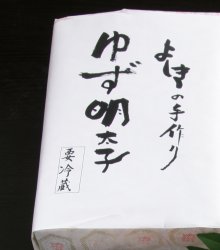 よしきの手作り
ゆず明太子
要冷蔵